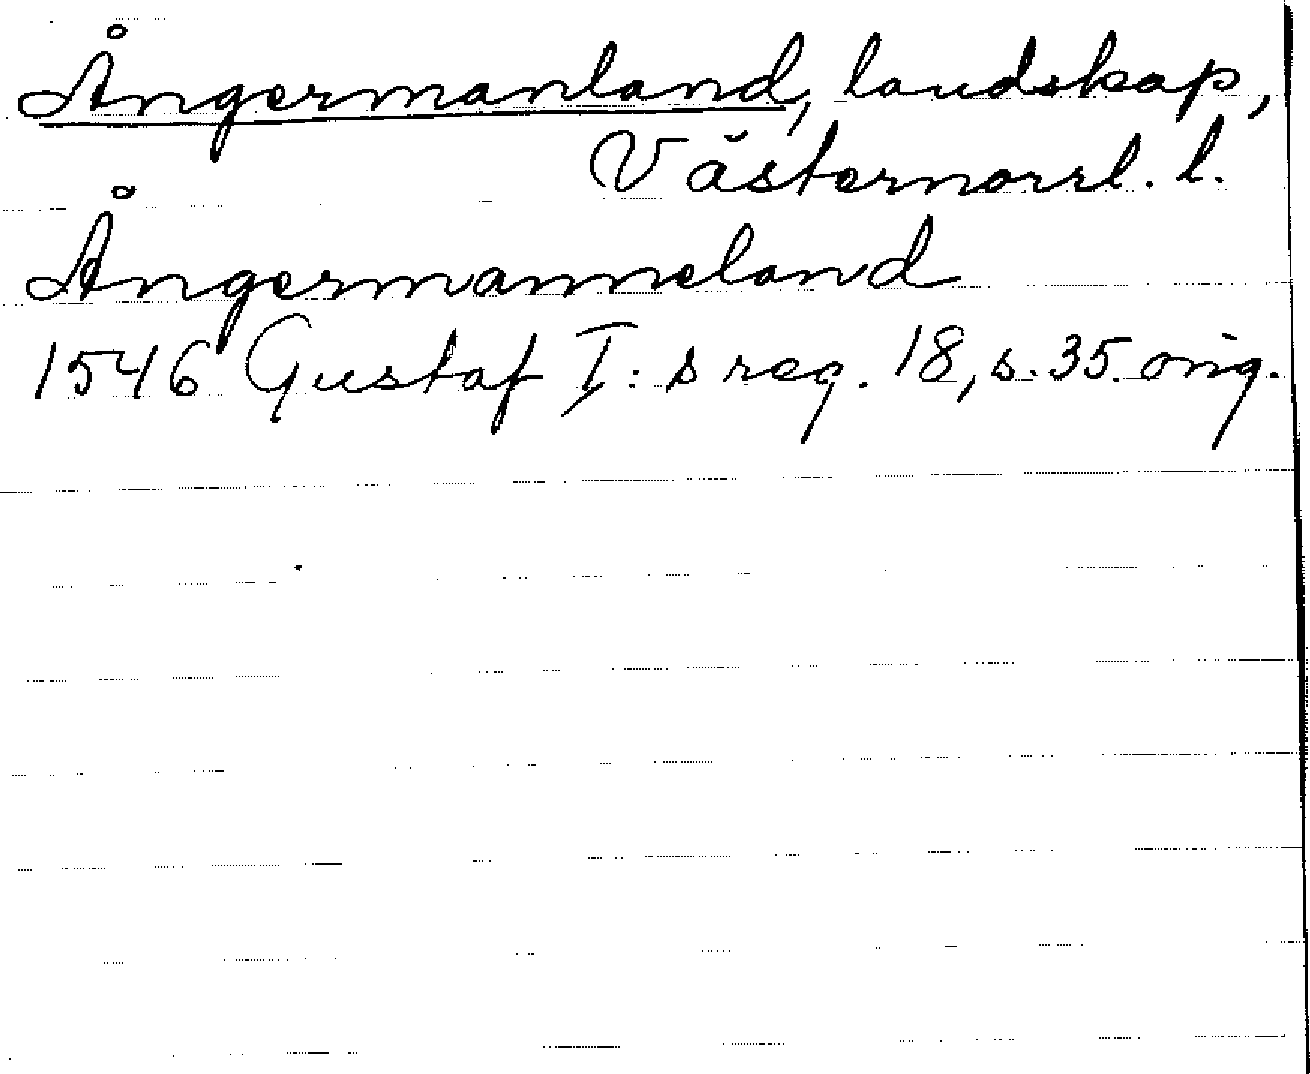 Ångermanland, landskap,
Västernorrl. l.
Ångermanneland
1546 Gustaf I:s reg. 18, s. 35. orig.